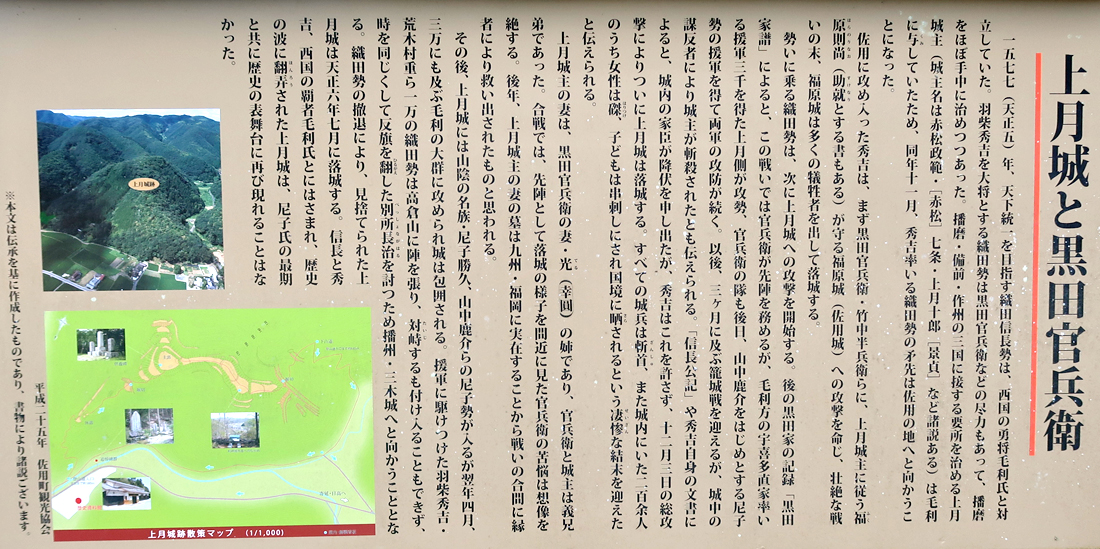 上月城と黒田官兵衛
一五七七（天正五）年、天下統一を目指す織田信長勢は、西国の勇将毛利氏と対
立していた。羽柴秀吉を大将とする織田勢は黒田官兵衛などの尽力もあって、播磨
をほぼ手中に治めつつあった。播磨・備前・作州の三国に接する要所を治める上月
城主（城主名は赤松政範・「赤松」七条・上月十郎「景貞」など諸説ある）は毛利
に与していたため、同年十一月、秀吉率いる織田勢の矛先は佐用の地へと向かうこ
とになった。
佐用に攻め入った秀吉は、まず黒田官兵衛・竹中半兵衛らに、上月城主に従う福
原則尚（助就とする書もある）が守る福原城（佐用城）への攻撃を命じ、壮絶な戦
いの末、福原城は多くの犠牲者を出して落城する。
勢いに乗る織田勢は、次に上月城への攻撃を開始する。後の黒田家の記録「黒田
家譜」によると、この戦いでは官兵衛が先陣を務めるが、毛利方の宇喜多直家率い
る援軍三千を得た上月側が攻勢、官兵衛の隊も後日、山中鹿介をはじめとする尼子
勢の援軍を得て両軍の攻防が続く。以後、三ヶ月に及ぶ籠城戦を迎えるが、城中の
謀反者により城主が斬殺されたとも伝えられる。「信長公記」や秀吉自身の文書に
よると、城内の家臣が降伏を申し出たが、秀吉はこれを許さず、十二月三日の総攻
撃によりついに上月城は落城する。すべての城兵は斬首、また城内にいた二百余人
のうち女性は磔、子どもは串刺しにされ国境に晒されるという凄惨な結末を迎えた
と伝えられる。
上月城主の妻は、黒田官兵衛の妻・光（幸圓）の姉であり、官兵衛と城主は義兄
弟であった。合戦では、先陣として落城の様子を間近に見た官兵衛の苦悩は想像を
絶する。後年、上月城主の妻の墓は九州・福岡に実在することから戦いの合間に縁
者により救い出されたものと思われる。
その後、上月城には山陰の名族・尼子勝久、山中鹿介らの尼子勢が入るが翌年四月、
三万にも及ぶ毛利の大群に攻められ城は包囲される。援軍に駆けつけた羽柴秀吉・
荒木村重ら一万の織田勢は高倉山に陣を張り、対峙するも付け入ることもできず、
時を同じくして反旗を翻した別所長治を討つため播州・三木城へと向かうこととな
る。織田勢の撤退により、見捨てられた上
月城は天正六年七月に落城する。信長と秀
吉、西国の覇者毛利氏とにはさまれ、歴史
の波に翻弄された上月城は、尼子氏の最期
と共に歴史の表舞台に再び現れることはな
かった。
上月城跡
上月城跡散策マップ （1/1,000）
平成二十五年 佐用町観光協会
※本文は伝承を基に作成したものであり、書物により諸説ございます。